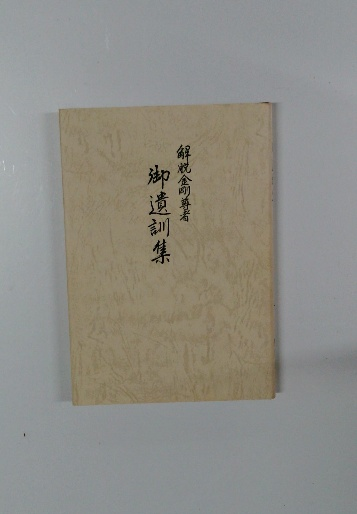 解脱金剛尊者
御遺訓集